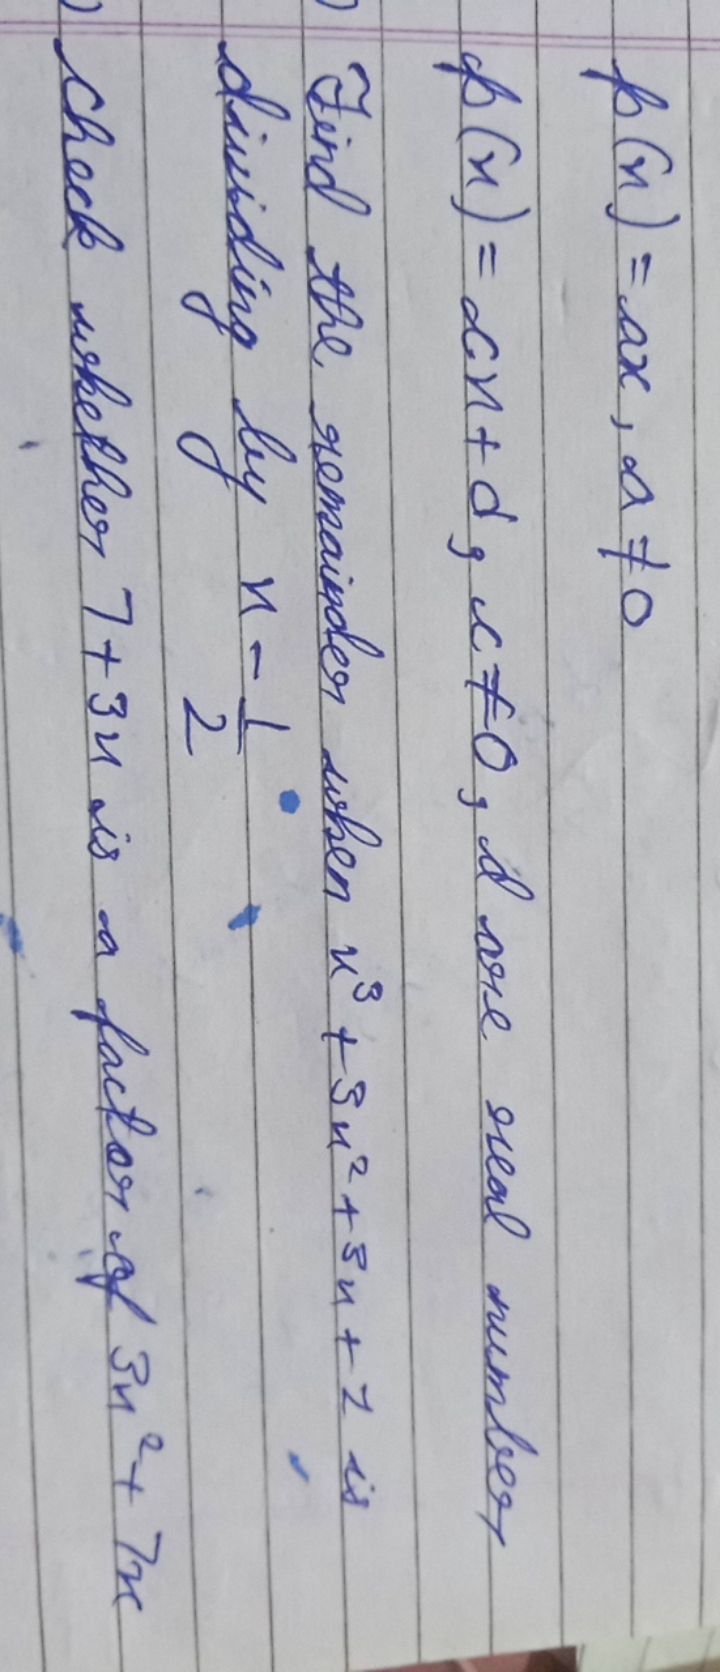 p(x) = ax, a ≠ 0
p(x) = cx + d, c ≠ 0, d are real number
) Find the remainder when x³ + 3x² + 3x + 1 is
dividing by x - 1/2
) Check whether 7 + 3x is a factor of 3x² + 7x